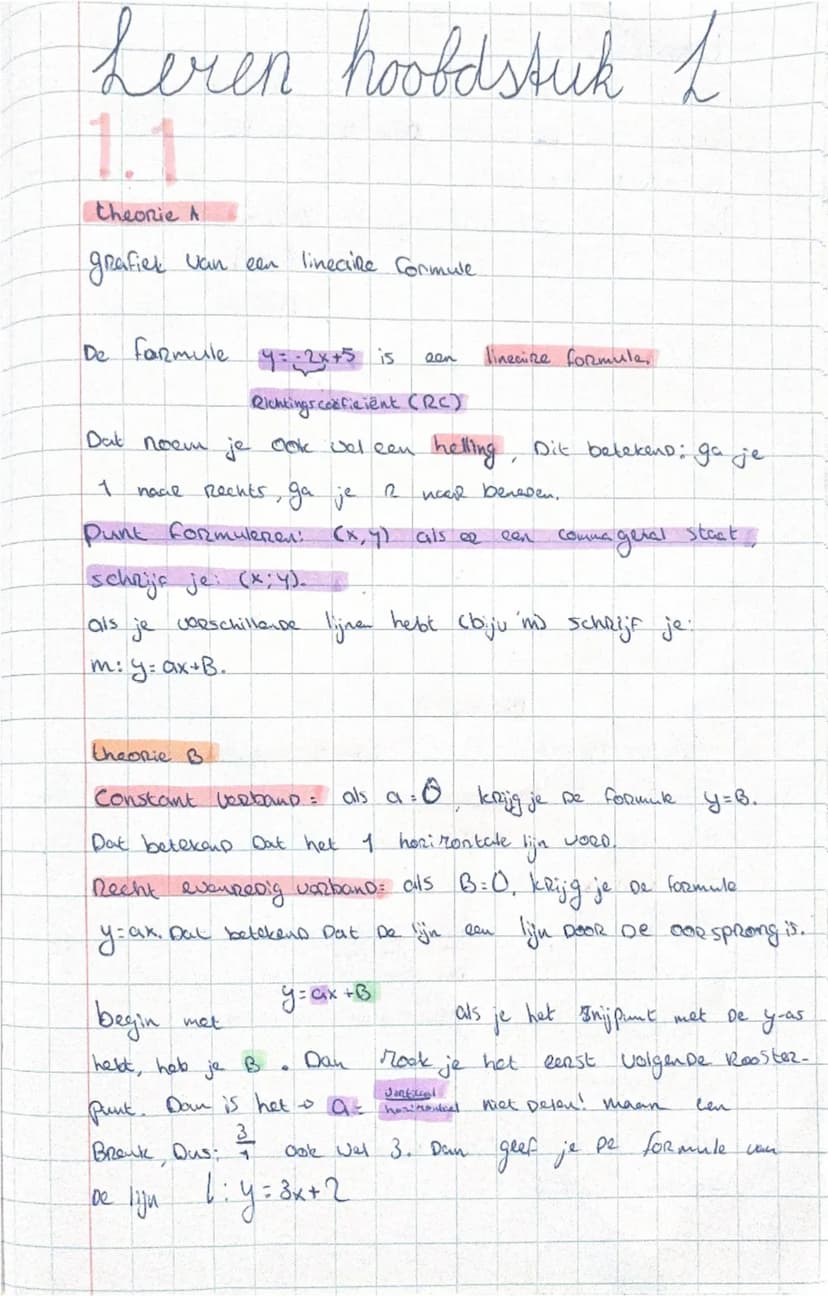 Leren hoofdstuk 1
1.1
theorie A
grafiek van een lineaire formule
De formule y=-2x+5 is een lineaire formule.
Richtingscoëficiënt (RC)
Dat noem je ook wel een helling, Dit betekend: ga je
1 naar rechts, ga je 2 naar beneden.
Punt formuleren: (x,y) als er een commagetal staat,
schrijf je: (x;y).
als je verschillende lijnen hebt (bijv 'm) schrijf je:
m: y=ax+B.
theorie B
Constant verband= als a=0, krijg je de formule y=B.
Dat betekend dat het 1 horizontale lijn word.
Recht evenredig verband= als B=0, krijg je de formule
y=ax. Dat betekend Dat De lijn een lijn DOOR De oorsprong is.
y=ax+B
begin met als je het snijpunt met De y-as
hebt, heb je B. Dan zoek je het eerst volgende Rooster-
punt. Dan is het → a= verticaal
horizontaal niet Delen! maar een
Breuk, Dus: 3/1 ook wel 3. Dan geef je De formule van
De lijn l: y=3x+2